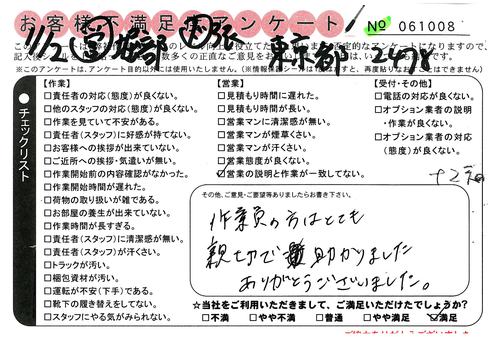 お客様不満足度アンケート
No 061008
東京都
※このアンケートは、アンケート目的以外には使用いたしません。
チェックリスト
【作業】
□責任者の対応(態度)が良くない。
□他のスタッフの対応(態度)が良くない。
□作業を見ていて不安がある。
□責任者(スタッフ)に好感が持てない。
□お客様への挨拶が出来ていない。
□ご近所への挨拶・気遣いが無い。
□作業開始前の内容確認がなかった。
□作業開始時間が遅れた。
□荷物の取り扱いが雑である。
□お部屋の養生が出来ていない。
□作業時間が長すぎる。
□責任者(スタッフ)に清潔感が無い。
□責任者(スタッフ)が汗くさい。
□トラックが汚い。
□梱包資材が汚い。
□運転が不安(下手)である。
□靴下の履き替えをしてない。
□スタッフにやる気がみられない。
【営業】
□見積もり時間に遅れた。
□見積もり時間が長い。
□営業マンに清潔感が無い。
□営業マンが煙草くさい。
□営業マンが汗くさい。
□営業態度が良くない。
☑営業の説明と作業が一致してない。
【受付・その他】
□電話の対応が良くない。
□オプション業者の説明
・作業が良くない。
□オプション業者の対応
(態度)が良くない。
その他、ご意見・ご要望等ありましたらお書き下さい。
作業員の方はとても
親切で助かりました
ありがとうございました。
☆当社をご利用いただきまして、ご満足いただけたでしょうか?
□不満 □やや不満 □普通 □やや満足 ☑満足